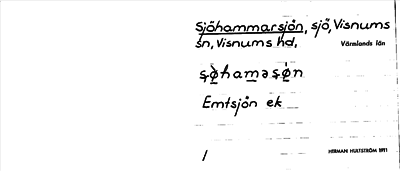 Sjöhammarsjön, sjö, Visnums
sn, Visnums hd,
Värmlands län
Emtsjön ek
1
HERMAN HULTSTRÖM 1911